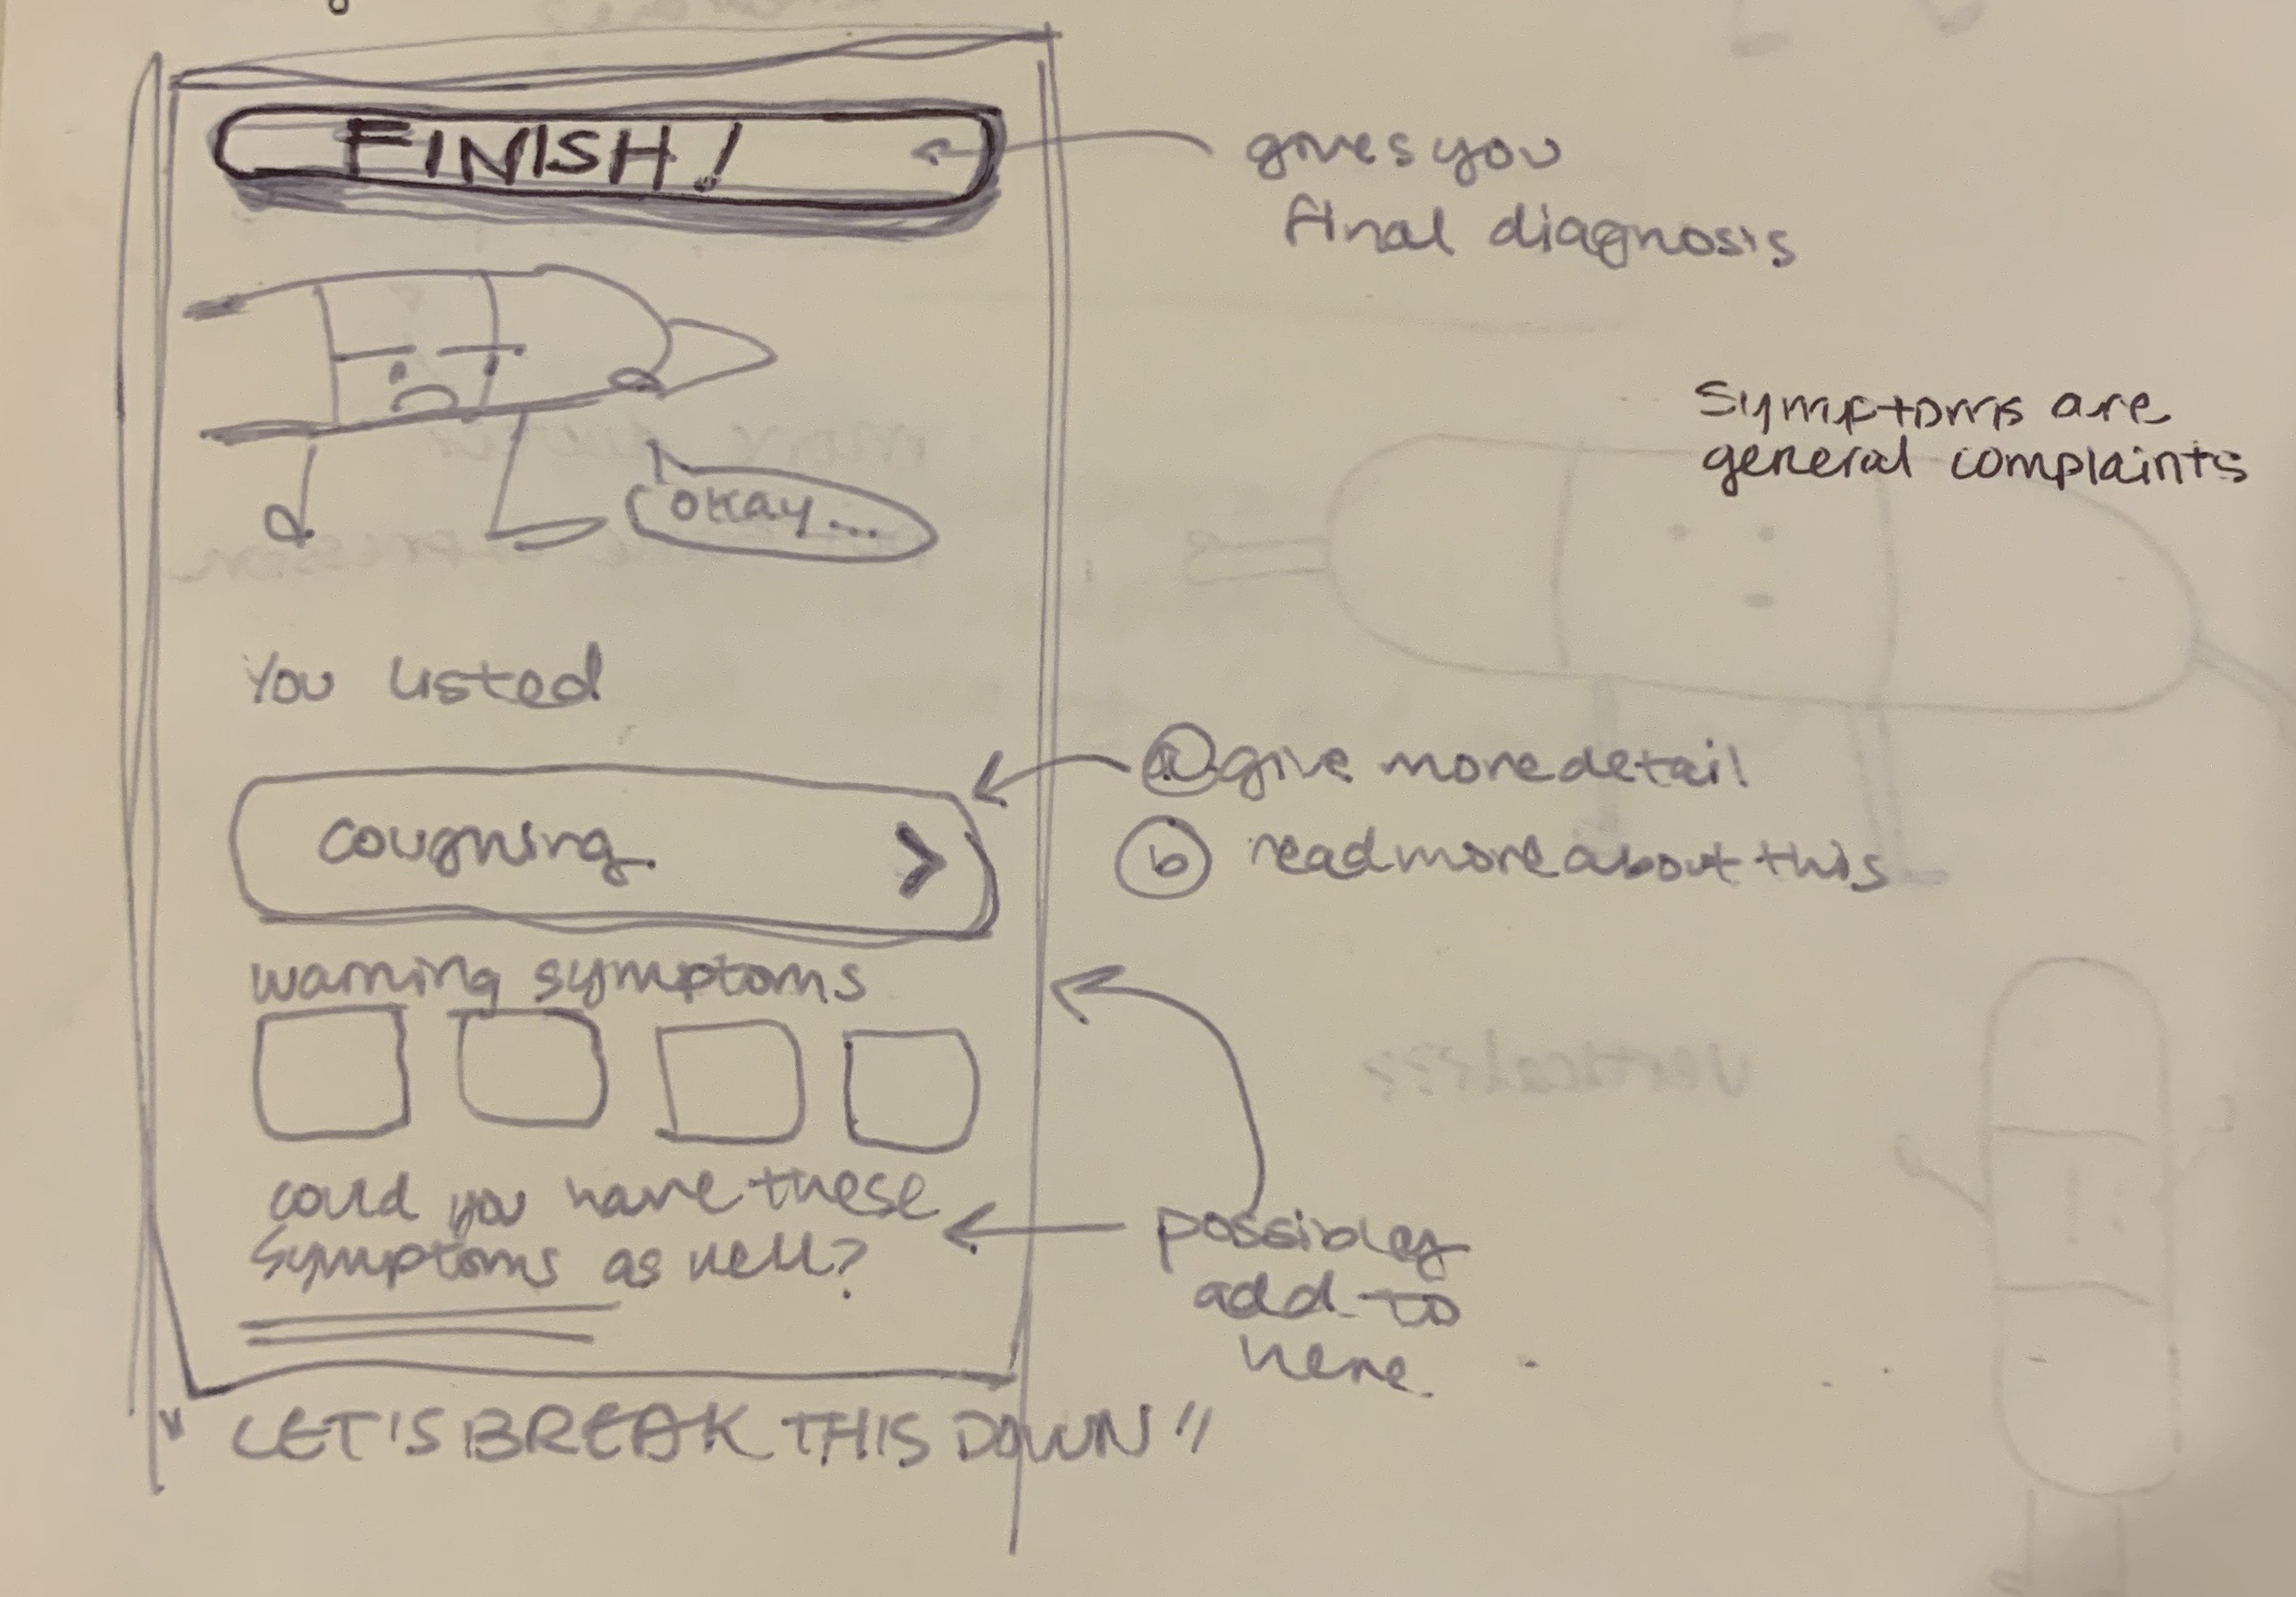 FINISH!
gives you
final diagnosis
Symptoms are
general complaints
okay...
You listed
a give more detail
b read more about this
coughing.
warning symptoms
could you have these
symptoms as well?
possibley
add to
here.
LET'S BREAK THIS DOWN!!
vertical???